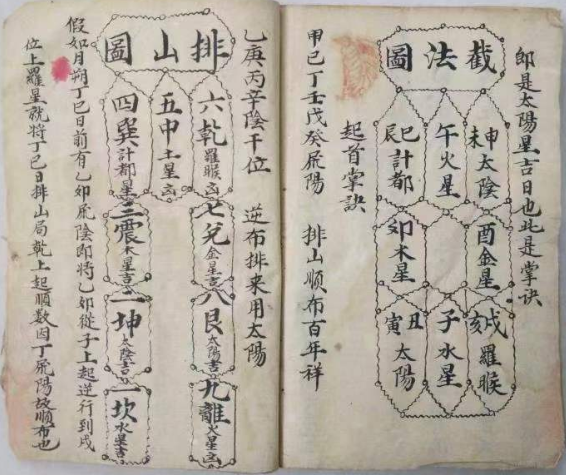 卽是太陽星吉日也此是掌訣
截法圖
申未太陰
午火星
巳辰計都
酉金星
卯木星
戌亥羅睺
子水星
丑寅太陽
起首掌訣
甲已丁壬戊癸飛陽 排山順布百年祥
乙庚丙辛陰干位 逆布排来用太陽
排山圖
六乾羅睺凶
五中土星凶
四巽計都星
七兌金星吉
三震木星吉
八艮太陽吉
二坤太陰吉
九離火星凶
一坎水星吉
假如月朔丁巳日前有乙卯飛陰即將乙卯從子上起逆行到戌
位上羅星就將丁巳日排山局乾上起順數因丁飛陽故順布也